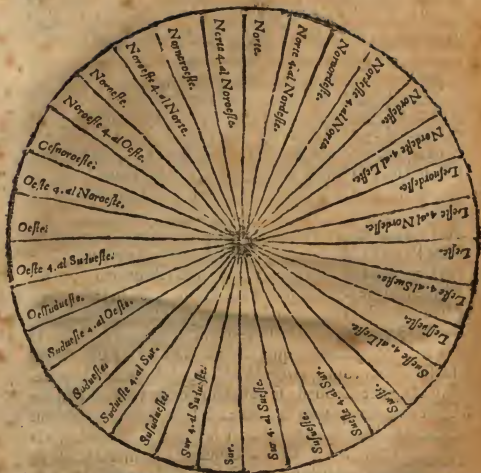 Norte.
Norte 4. al Nordeſte.
Nornordeſte.
Nordeſte 4. al Norte.
Nordeſte.
Nordeſte 4. al Leſte.
Leſnordeſte.
Leſte 4. al Nordeſte.
Leſte.
Leſte 4. al Sueſte.
Leſſueſte.
Sueſte 4. al Leſte.
Sueſte.
Sueſte 4. al Sur.
Suſueſte.
Sur 4. al Sueſte.
Sur.
Sur 4. al Sudueſte.
Suſudueſte.
Sudueſte 4. al Sur.
Sudueſte.
Sudueſte 4. al Oeſte.
Oeſſudueſte.
Oeſte 4. al Sudueſte.
Oeſte.
Oeſte 4. al Noroeſte.
Oeſnoroeſte.
Noroeſte 4. al Oeſte.
Noroeſte.
Noroeſte 4. al Norte.
Nornoroeſte.
Norte 4. al Noroeſte.